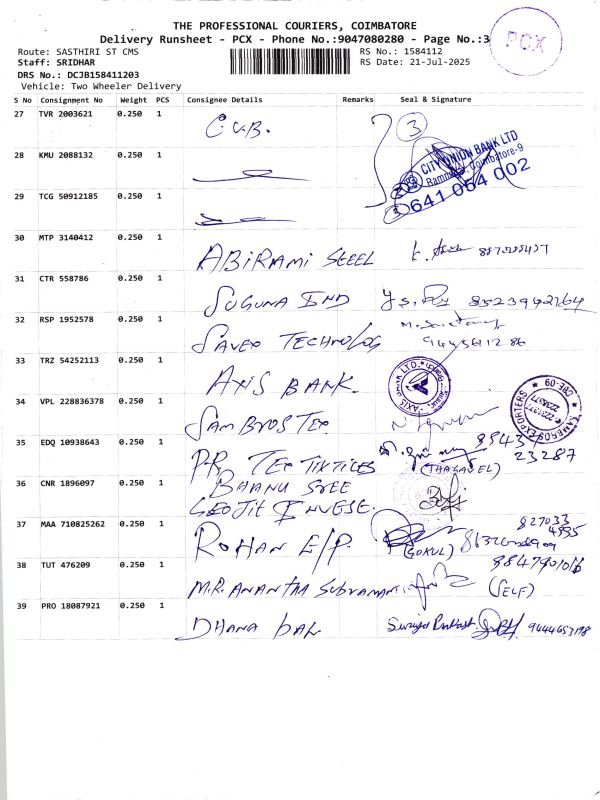 THE PROFESSIONAL COURIERS, COIMBATORE
Delivery Runsheet - PCX - Phone No.:9047080280 - Page No.:3
PCX
Route: SASTHIRI ST CMS
RS No.: 1584112
Staff: SRIDHAR
RS Date: 21-Jul-2025
DRS No.: DCJB158411203
Vehicle: Two Wheeler Delivery
S No Consignment No Weight PCS Consignee Details Remarks Seal & Signature
27 TVR 2003621 0.250 1 C.U.B. 3
28 KMU 2088132 0.250 1
CITY UNION BANK LTD
Coimbatore-9
641 054 002
29 TCG 50912185 0.250 1
30 MTP 3140412 0.250 1 ABIRAMI STEEL
31 CTR 558786 0.250 1 SUGUNA IND
32 RSP 1952578 0.250 1 SAVEO TECHNOLOG
33 TRZ 54252113 0.250 1 AXIS BANK.
34 VPL 228836378 0.250 1 SAMBROS TEX
35 EDQ 10938643 0.250 1 P.R. TEX TIXTILES (THAGAVEL) 23287
36 CNR 1896097 0.250 1 BHANU SREE
GEOJIT INVESE.
37 MAA 710825262 0.250 1 ROHAN E/P. (GOKUL) 827033
38 TUT 476209 0.250 1 M.R. ANANTHA SUBRAMANI (SELF)
39 PRO 18087921 0.250 1 DHANA BAL Suriya Prakash 9444653198